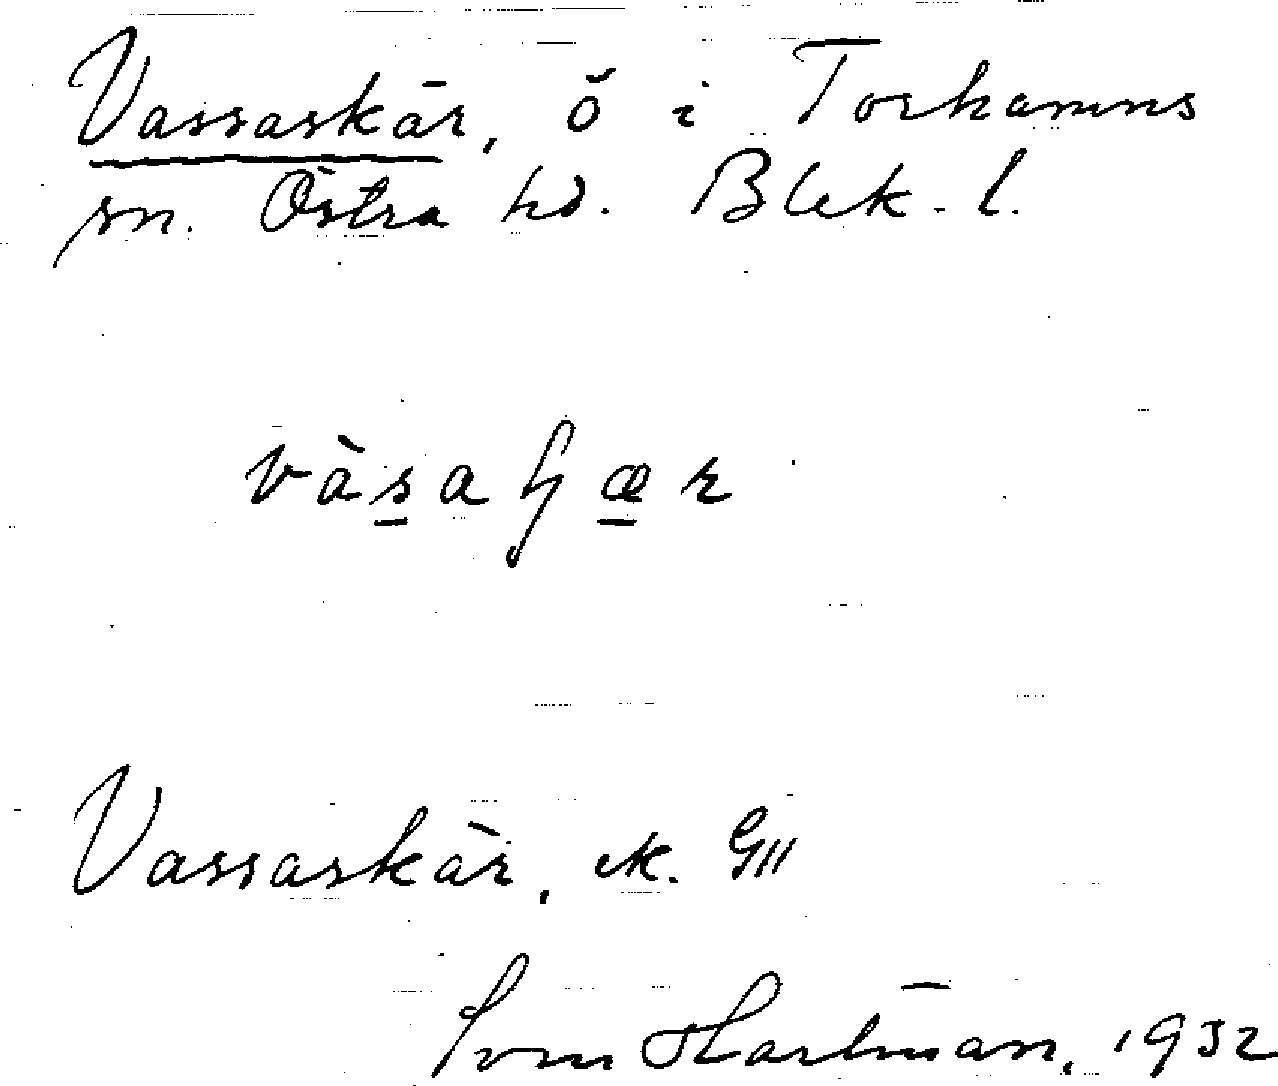 Vassaskär, ö i Torhamns
sn. Östra hd. Blek. l.
vàsaʃær
Vassaskär, ek. G III
Sven Hartman, 1932